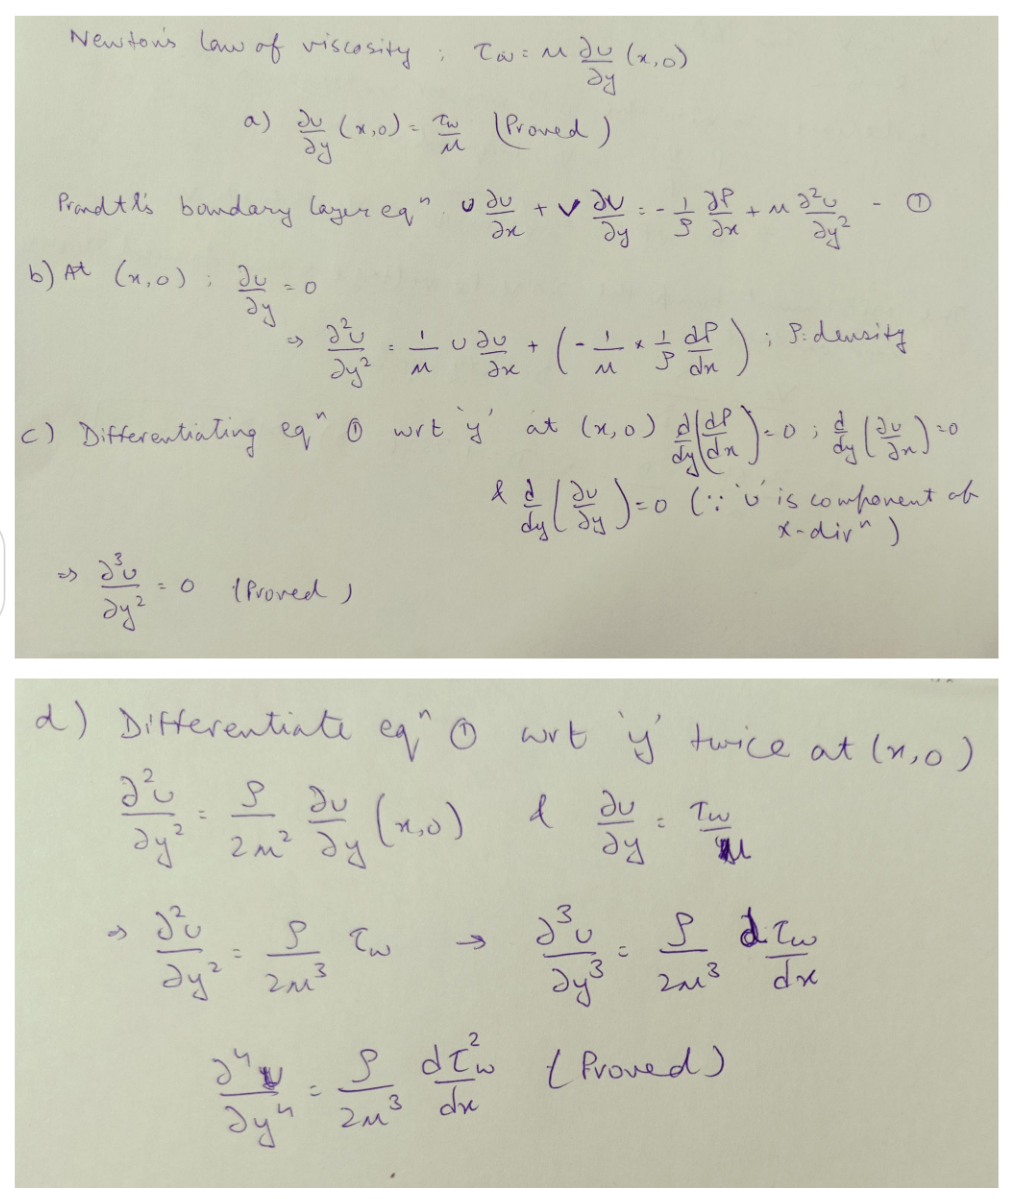 Newton's law of viscosity ; τw = μ ∂u/∂y (x,0)
a) ∂u/∂y (x,0) = τw/μ (Proved)
Prandtl's boundary layer eqⁿ. u ∂u/∂x + v ∂u/∂y = - 1/ρ ∂P/∂x + μ ∂²u/∂y² - ①
b) At (x,0) ; ∂u/∂y = 0
⇒ ∂²u/∂y² = 1/μ u ∂u/∂x + (- 1/μ × 1/ρ dP/dx) ; ρ: density
c) Differentiating eqⁿ ① wrt 'y' at (x,0) d/dy (dP/dx) = 0 ; d/dy (∂u/∂x) = 0
& d/dy (∂u/∂y) = 0 (∵ 'u' is component of
x-dirⁿ)
⇒ ∂³u/∂y² = 0 (Proved)
d) Differentiate eqⁿ ① wrt 'y' twice at (x,0)
∂²u/∂y² = ρ/2μ² ∂u/∂y (x,0) & ∂u/∂y = τw/μ
⇒ ∂²u/∂y² = ρ/2μ³ τw → ∂³u/∂y³ = ρ/2μ³ dτw/dx
∂⁴u/∂y⁴ = ρ/2μ³ dτ²w/dx (Proved)